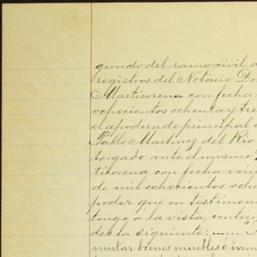 gundo del ramo civil d
registros del Notario Do
Martisorena con fecha
ochocientos ochenta y tre
el apoderado principal
Pablo Martinez del Rio
torgado ante el mismo
tisorena con fecha vein
de mil ochocientos oche
poder que en testimoni
tengo a la vista, contien
de la siguiente; —
mutar bienes muebles é inm